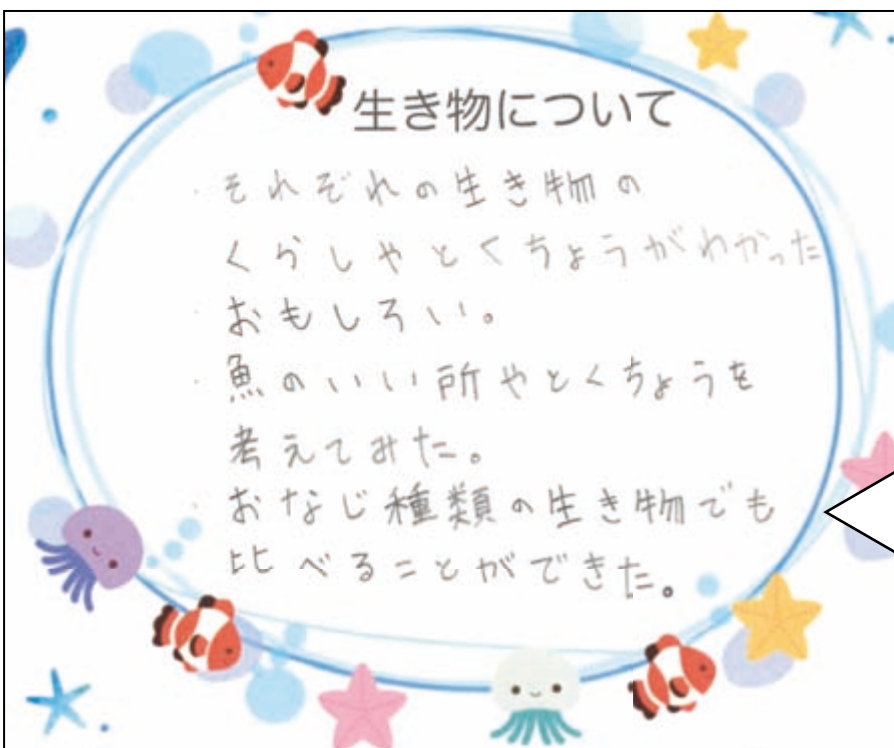 生き物について
・それぞれの生き物の
くらしやとくちょうがわかった
・おもしろい。
・魚のいい所やとくちょうを
考えてみた。
・おなじ種類の生き物でも
比べることができた。